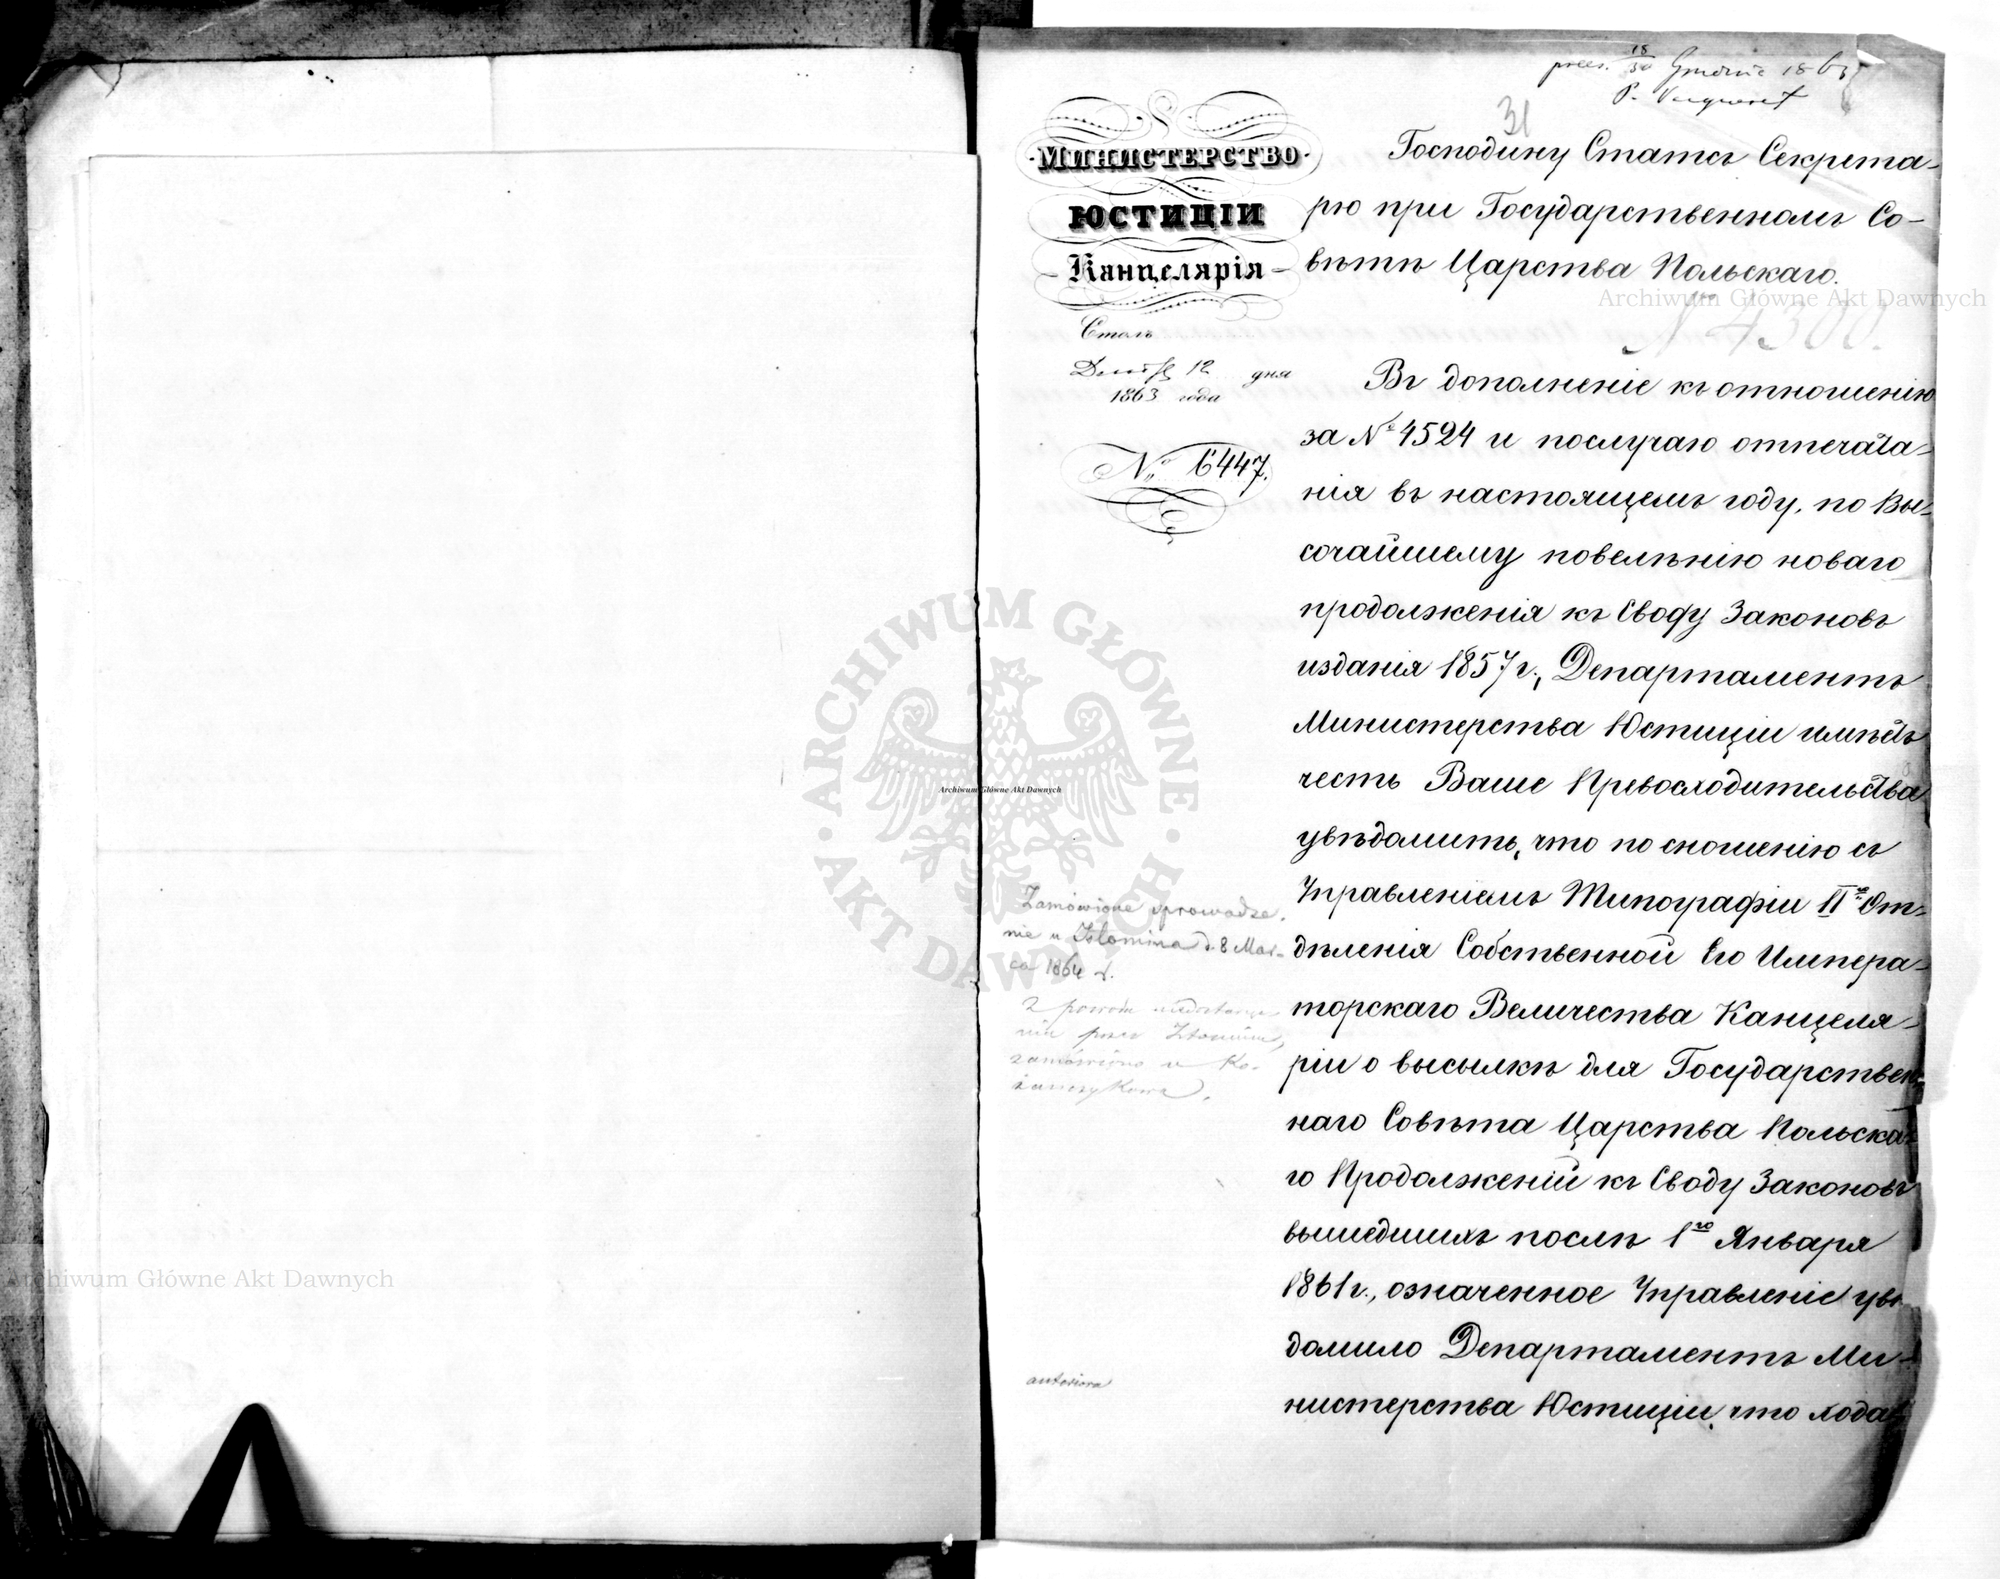 18
30 Grudnia 1863
31
МИНИСТЕРСТВО
ЮСТИЦІИ
Канцелярія
Столъ
12 дня
1863 года
№ 6447.
Господину Статсъ Секрета-
рю при Государственномъ Со-
вѣтѣ Царства Польскаго.
№ 4300.
Въ дополненіе къ отношенію
за № 4524 и послучаю отпечата-
нія въ настоящемъ году, по Вы-
сочайшему повелѣнію новаго
продолженія къ Своду Законовъ
изданія 1857 г., Департаментъ
Министерства Юстиціи имѣетъ
честь Ваше Превосходительство
увѣдомить, что по сношенію съ
Управленіемъ Типографіи II го От-
дѣленія Собственной Его Импера-
торскаго Величества Канцеля-
ріи о высылкѣ для Государствен-
наго Совѣта Царства Польска-
го Продолженій къ Своду Законовъ
вышедшихъ послѣ 1го Января
1861 г., означенное Управленіе увѣ-
домило Департаментъ Ми-
нистерства Юстиціи, что хода
Zamówione sprowadze-
nie u Istomina d. 8 Mar-
ca 1864 r.
z powodu
nia przez Istomina,
zamówiono u Ko-
żanczykowa.
Archiwum Główne Akt Dawnych
ARCHIWUM GŁÓWNE
· AKT DAWNYCH ·
Archiwum Główne Akt Dawnych
Archiwum Główne Akt Dawnych